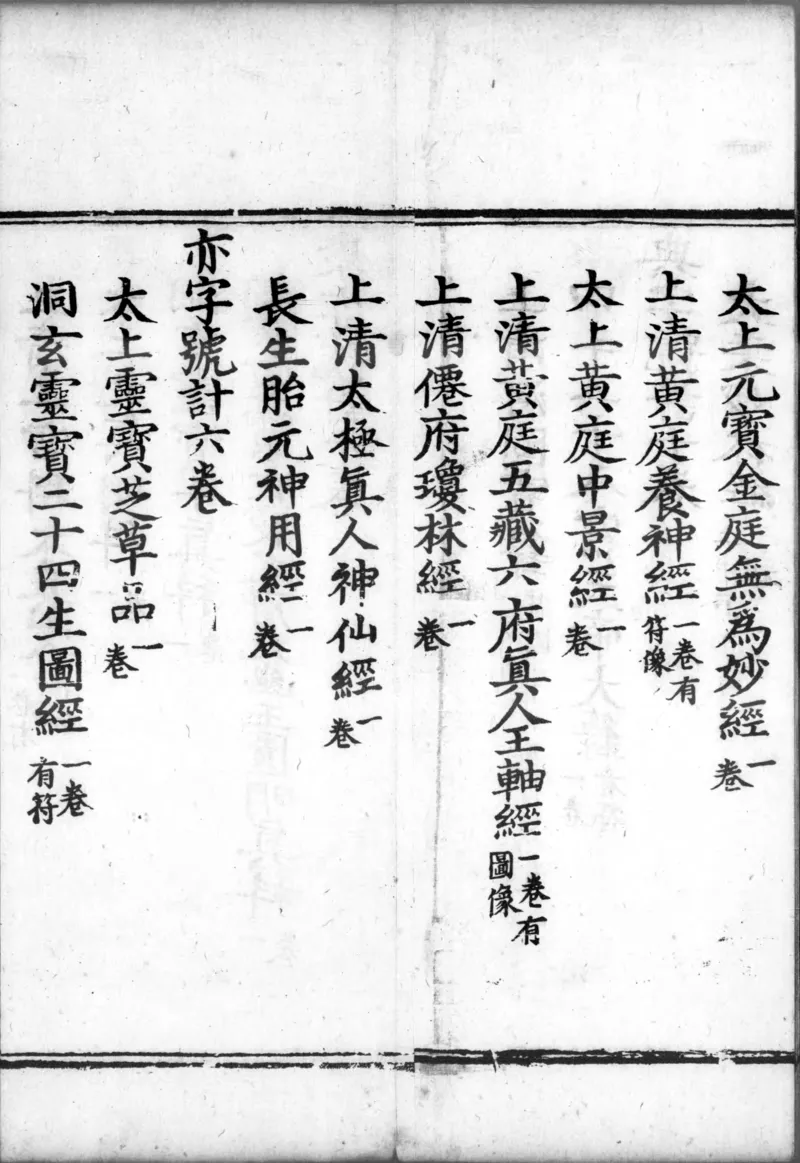 太上元寶金庭無爲妙經一卷
上清黃庭養神經一卷有符像
太上黃庭中景經一卷
上清黃庭五藏六府眞人王軸經一卷有圖像
上清僊府瓊林經一卷
上清太極眞人神仙經一卷
長生胎元神用經一卷
亦字號計六卷
太上靈寶芝草品一卷
洞玄靈寶二十四生圖經一卷有符